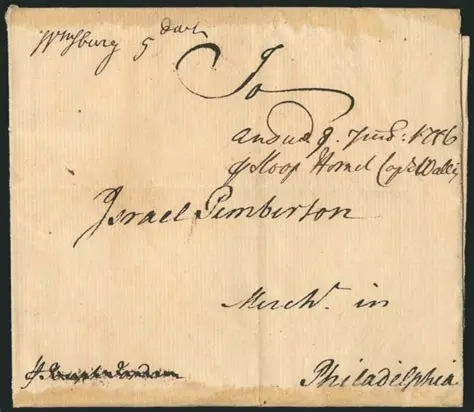 Wmsburg 5 dwt
To
and 9. 1746
⅌ Sloop Hornet Capt Wallis
Israel Pemberton
Mercht. in
Philadelphia